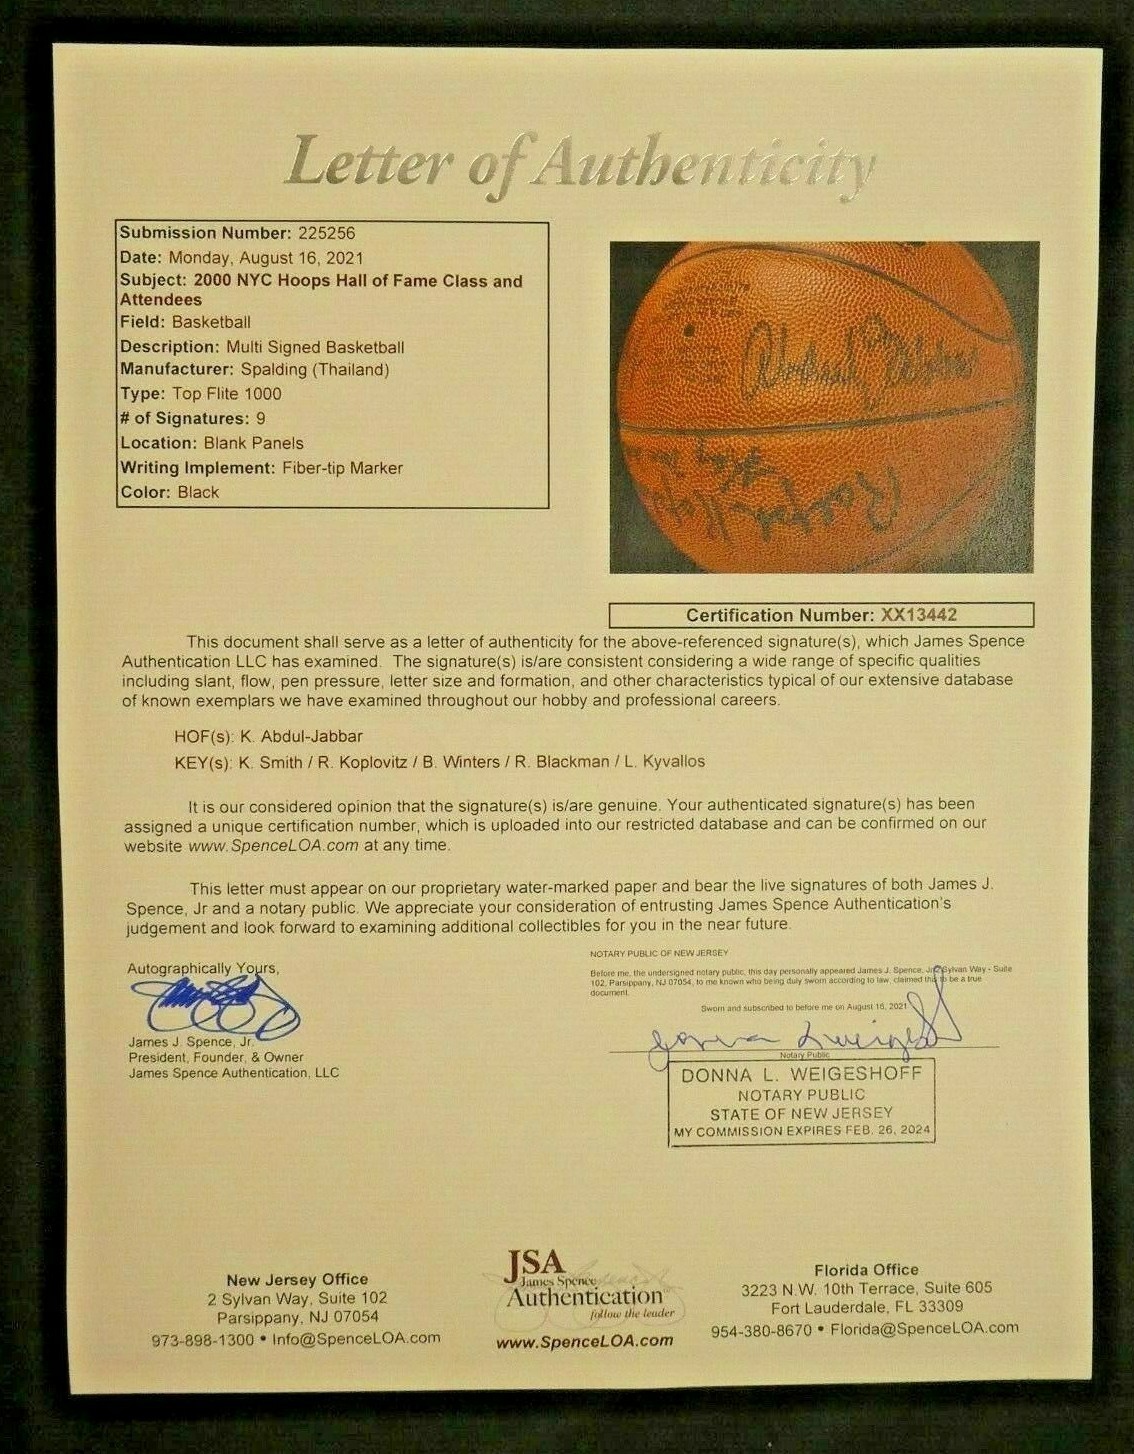 Letter of Authenticity
Submission Number: 225256
Date: Monday, August 16, 2021
Subject: 2000 NYC Hoops Hall of Fame Class and
Attendees
Field: Basketball
Description: Multi Signed Basketball
Manufacturer: Spalding (Thailand)
Type: Top Flite 1000
# of Signatures: 9
Location: Blank Panels
Writing Implement: Fiber-tip Marker
Color: Black
Certification Number: XX13442
This document shall serve as a letter of authenticity for the above-referenced signature(s), which James Spence
Authentication LLC has examined. The signature(s) is/are consistent considering a wide range of specific qualities
including slant, flow, pen pressure, letter size and formation, and other characteristics typical of our extensive database
of known exemplars we have examined throughout our hobby and professional careers.
HOF(s): K. Abdul-Jabbar
KEY(s): K. Smith / R. Koplovitz / B. Winters / R. Blackman / L. Kyvallos
It is our considered opinion that the signature(s) is/are genuine. Your authenticated signature(s) has been
assigned a unique certification number, which is uploaded into our restricted database and can be confirmed on our
website www.SpenceLOA.com at any time.
This letter must appear on our proprietary water-marked paper and bear the live signatures of both James J.
Spence, Jr and a notary public. We appreciate your consideration of entrusting James Spence Authentication's
judgement and look forward to examining additional collectibles for you in the near future.
Autographically Yours,
James J. Spence, Jr.
President, Founder, & Owner
James Spence Authentication, LLC
NOTARY PUBLIC OF NEW JERSEY
Before me, the undersigned notary public, this day personally appeared James J. Spence, Jr. 2 Sylvan Way - Suite
102, Parsippany, NJ 07054, to me known who being duly sworn according to law, claimed this to be a true
document.
Sworn and subscribed to before me on August 16, 2021
Notary Public
DONNA L. WEIGESHOFF
NOTARY PUBLIC
STATE OF NEW JERSEY
MY COMMISSION EXPIRES FEB. 26, 2024
New Jersey Office
2 Sylvan Way, Suite 102
Parsippany, NJ 07054
973-898-1300 • Info@SpenceLOA.com
JSA
James Spence
Authentication
follow the leader
www.SpenceLOA.com
Florida Office
3223 N.W. 10th Terrace, Suite 605
Fort Lauderdale, FL 33309
954-380-8670 • Florida@SpenceLOA.com